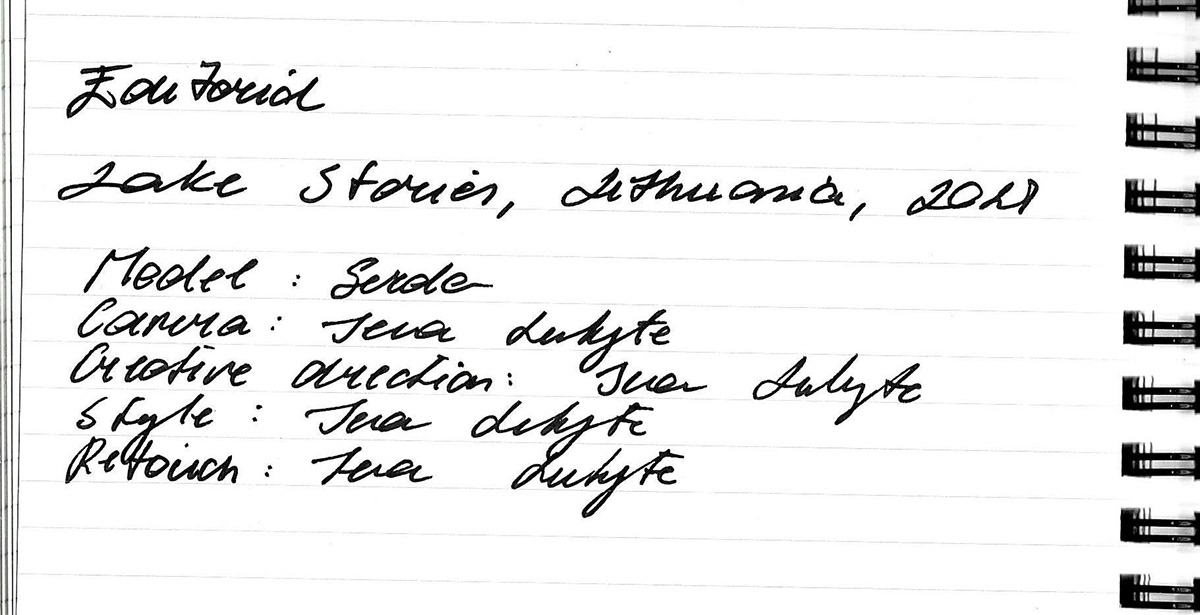 Editorial
Lake Stories, Lithuania, 2021
Model : Gerda
Camera : Ieva Lukyte
Creative direction : Ieva Lukyte
Style : Ieva Lukyte
Retouch : Ieva Lukyte